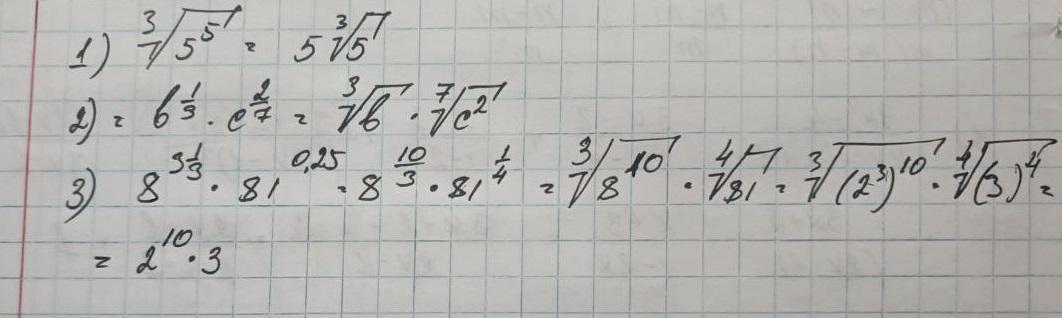 1) ∛(5⁵) = 5∛5
2) = b^(1/3) · c^(2/7) = ∛b · ⁷√(c²)
3) 8^(3 1/3) · 81^(0,25) = 8^(10/3) · 81^(1/4) = ∛(8¹⁰) · ∜81 = ∛((2³)¹⁰) · ∜((3)⁴) =
= 2¹⁰ · 3